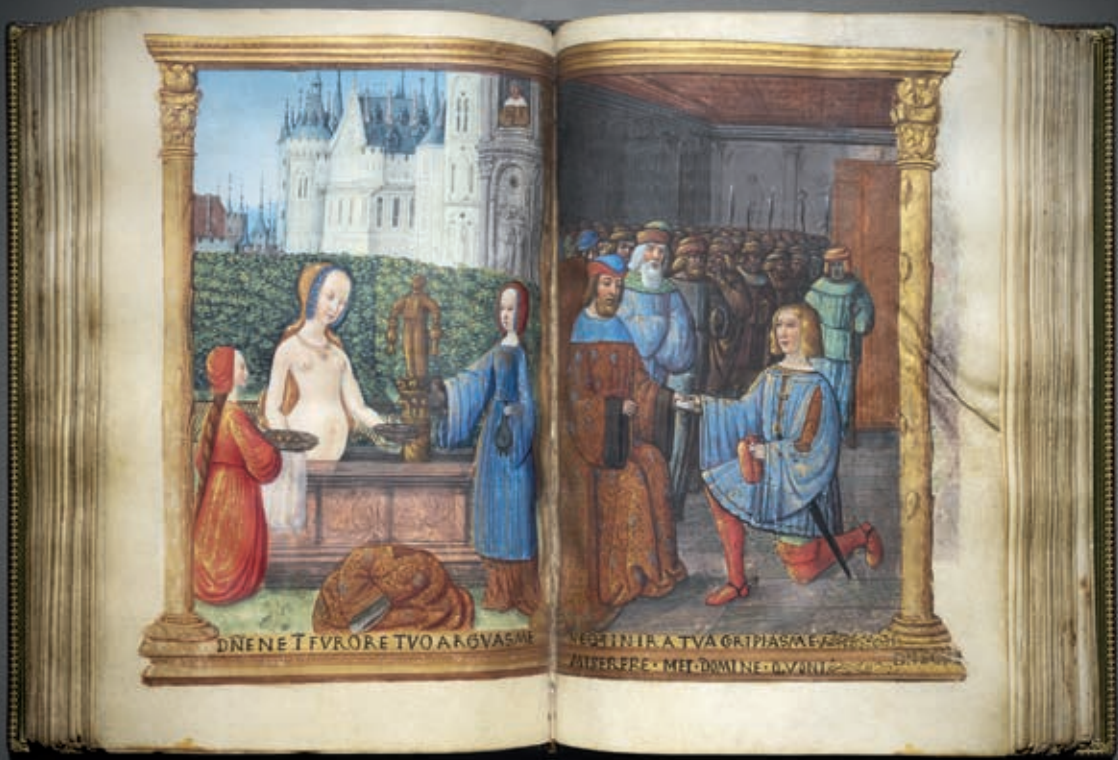 DÑE NE I FVRORE TVO ARGVAS ME
IN IRA TVA CORIPIAS ME
MISERERE · MEI · DOMINE · QVONI